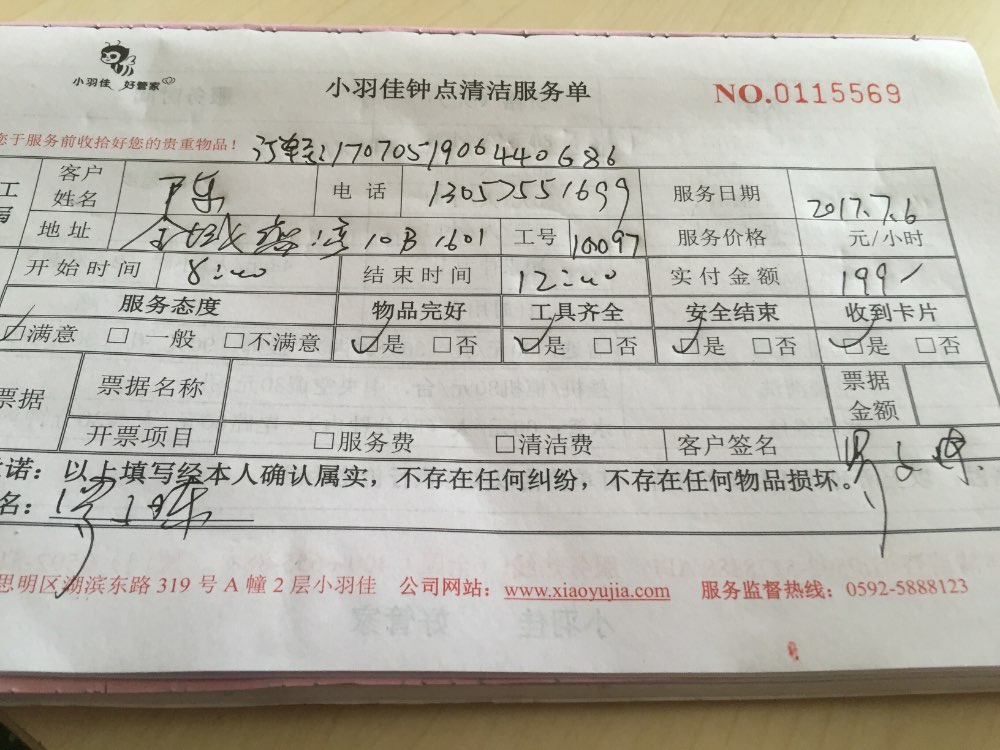 小羽佳 好管家
小羽佳钟点清洁服务单
NO.0115569
您于服务前收拾好您的贵重物品！ 订单号2170705190644068 6
客户姓名 丁乐 电话 13055551699 服务日期 2017.7.6
地址 金域蓝湾10B 1601 工号 10097 服务价格 元/小时
开始时间 8:00 结束时间 12:00 实付金额 199
服务态度 物品完好 工具齐全 安全结束 收到卡片
☑满意 □一般 □不满意 ☑是 □否 ☑是 □否 ☑是 □否 ☑是 □否
票据 票据名称 票据金额
开票项目 □服务费 □清洁费 客户签名
诺：以上填写经本人确认属实，不存在任何纠纷，不存在任何物品损坏。
名：
思明区湖滨东路 319 号 A 幢 2 层小羽佳 公司网站：www.xiaoyujia.com 服务监督热线：0592-5888123